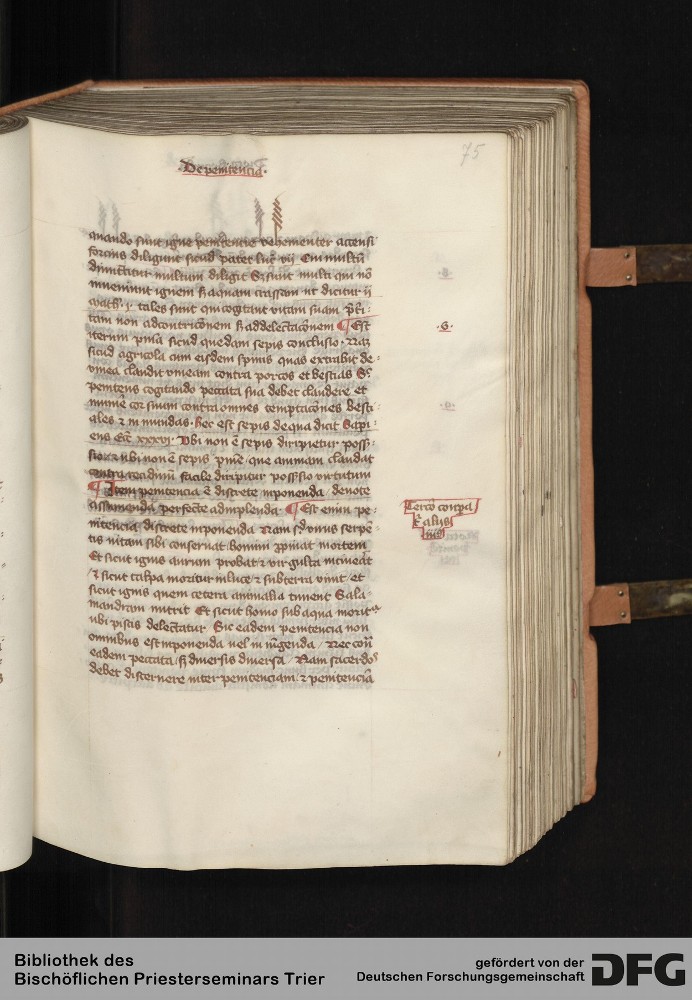 75
De penitencia.
quando sunt igne penitencie vehementer accensi
forcius diligunt sicud patet luc̄ vij Cui multū
dimittitur multum diligit Sꝫ sunt multi qui nō
inveniunt ignem sꝫ aquam crassam ut dicitur ij
tales sunt qui cogitant vitam suam
tam non ad contricōnem sꝫ ad delectacōnem ¶ Est
iterum sicud quedam sepis conclusio. Nā
sicud agricola cum eisdem spinis quas extrahit de
vinea claudit vineam contra porcos et bestias Sꝫ
penitens cogitando peccata sua debet claudere et
munire cor suum contra omnes temptacōnes besti
ales ꝛ in mundas. hec est sepis de qua dicit Sapi
ens Ecc̄ xxxvj. Ubi non ē sepis diripietur poss
sio ꝛ ubi non ē sepis pnīe que animam claudat
contra recidiuū facile diripitur posssio virtutum
¶ Item penitencia ē discrete inponenda deuote
assumenda perfecte adinplenda. ¶ Est enim pe
nitencia discrete inponenda Nam sꝫ vinus serpē
tis vitam sibi conservat homini mortem
Et sicut ignis aurum probat ꝛ virgulta
ꝛ sicut talpa moritur in luce ꝛ sub terra vivit et
sicut ignis quem cetera animalia timent Sala
mandram nutrit Et sicut homo sub aqua moritur
ubi piscis delectatur Sic eadem penitencia non
omnibus est inponenda vel in iūgenda Nec
eadem peccata sꝫ diversis diversa Nam sacerdos
debet discernere inter penitenciam ꝛ penitenciā
.B.
.G.
.D.
Tercō conpa
ꝛ alijs
iiij
Bibliothek des
Bischöflichen Priesterseminars Trier
gefördert von der
Deutschen Forschungsgemeinschaft
DFG